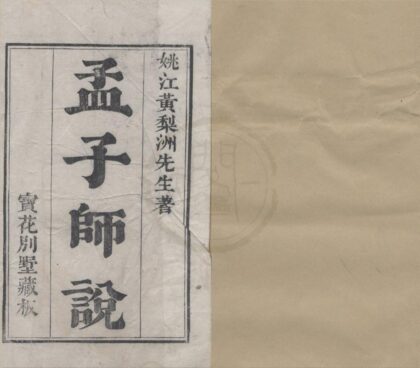 姚江黃梨洲先生著
孟子師說
寶花別墅藏板